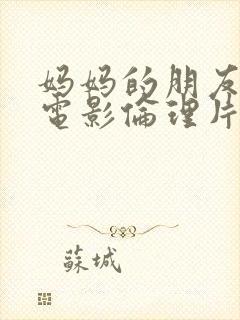 妈妈的朋友
電影倫理片
蘇城